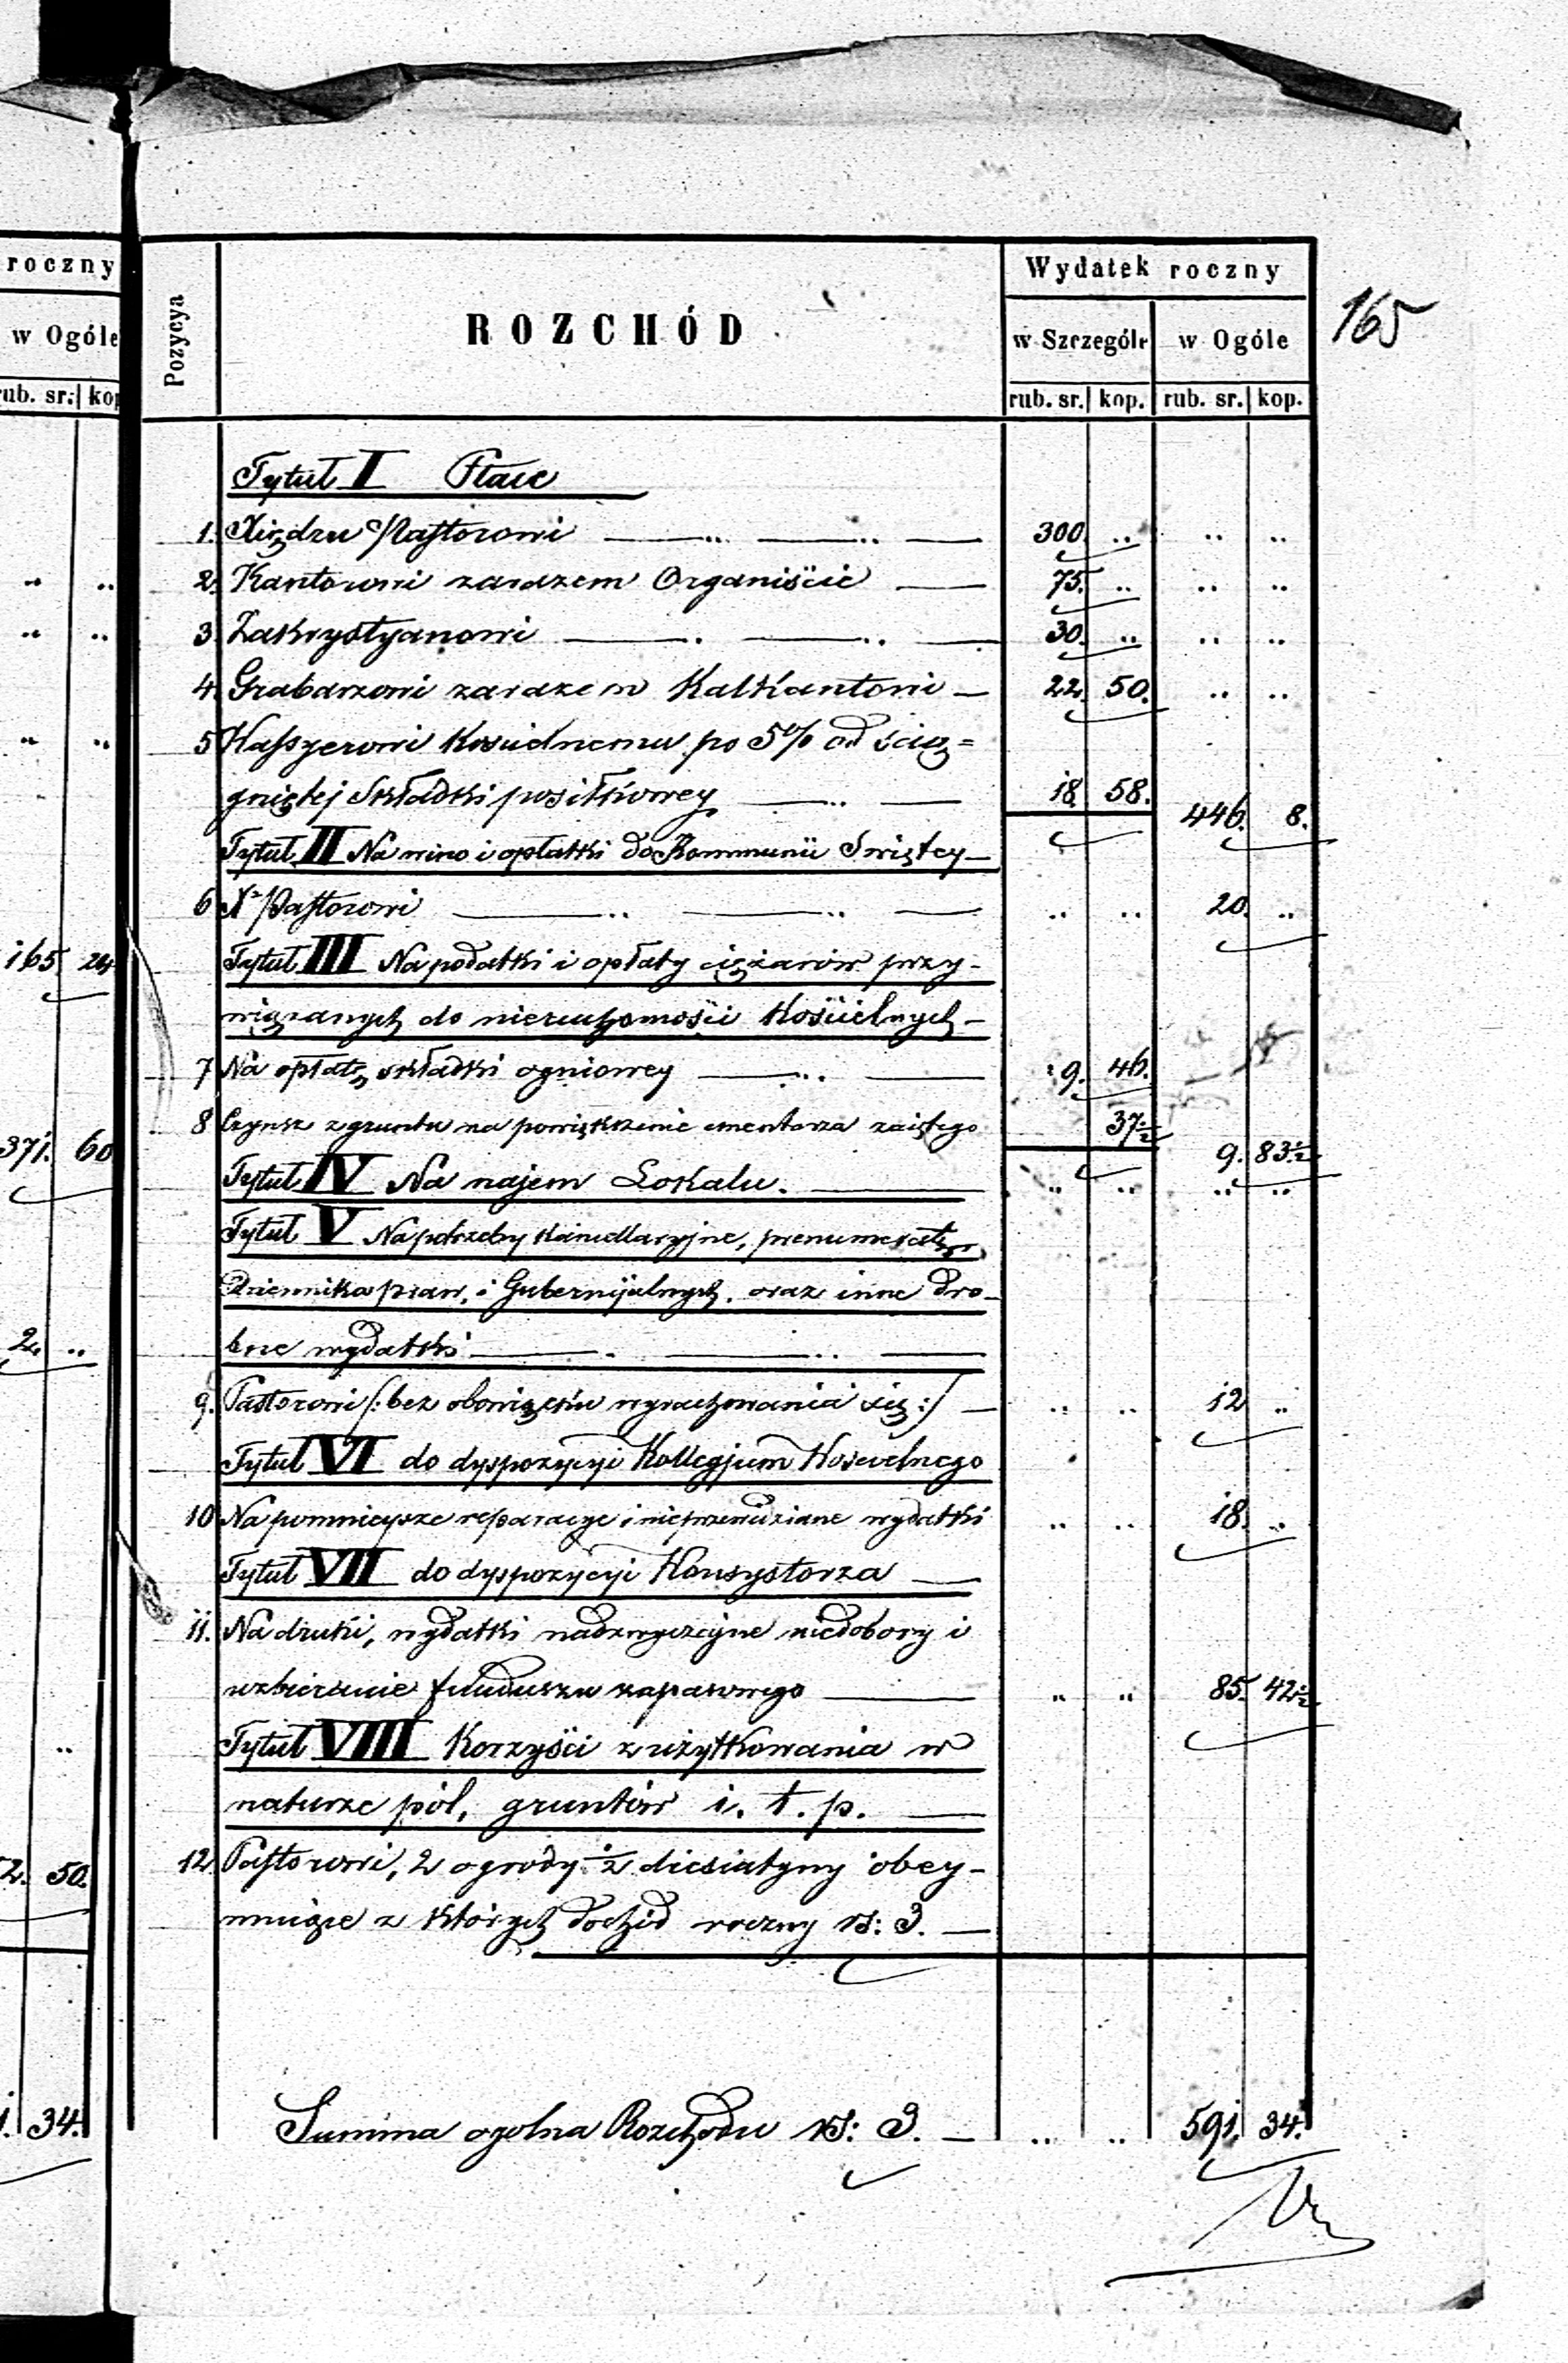 roczny
w Ogóle
rub. sr. kop
„ „
„ „
„ „
165 24
371. 60
2. „
„
2. 50.
1. 34.
165
Pozycya ROZCHÓD Wydatek roczny
w Szczególe w Ogóle
rub. sr. kop. rub. sr. kop.
Tytuł I Płace
1. Xiędzu Pastorowi — „ — „ — 300 „ „ „
2. Kantorowi zarazem Organiście — 75. „ „ „
3. Zakrystyanowi — „ — „ — 30. „ „ „
4. Grabarzowi zarazem Kalkantowi — 22. 50. „ „
5 Kassyerowi Kościelnemu po 5% od ścią=
gniętej Składki posiłkowey — „ — 18. 58. 446. 8.
Tytuł II Na wino i opłatki do Kommunii Swiętey —
6 X. Pastorowi — „ — „ — „ „ 20. „
Tytuł III Na podatki i opłaty ciężarów przy-
wiązanych do nieruchomości Kościelnych —
7 Na opłatę składki ogniowey — „ — 9. 46.
8 Czynsz z gruntu na powiększenie cmentarza zajętego 37½ 9. 83½
Tytuł IV Na najem Lokalu. — „ „ „ „
Tytuł V Na potrzeby Kancellaryjne, prenumeratę
Dziennika praw, i Gubernijalnych. oraz inne dro-
bne wydatki — . — „ —
9. Pastorowi /: bez obowiązku wyrachowania się :/ — „ „ 12 „
Tytuł VI do dyspozycyi Kollegjum Koscielnego
10 Na pomnieysze reparacye i nieprzewidziane wydatki „ „ 18. „
Tytuł VII do dyspozycyi Konsystorza —
11. Na druki, wydatki nadzwyczajne niedobory i
uzbieranie funduszu zapasowego — „ „ 85. 42½
Tytuł VIII Korzyści z użytkowania w
naturze pól, gruntów i. t. p. —
12. Pastorowi, 2 ogrody ½ diesiatyny obey-
muiące z których dochód roczny rs: 3. —
Summa ogolna Rozchodu rs: 3. — „ „ 591. 34.